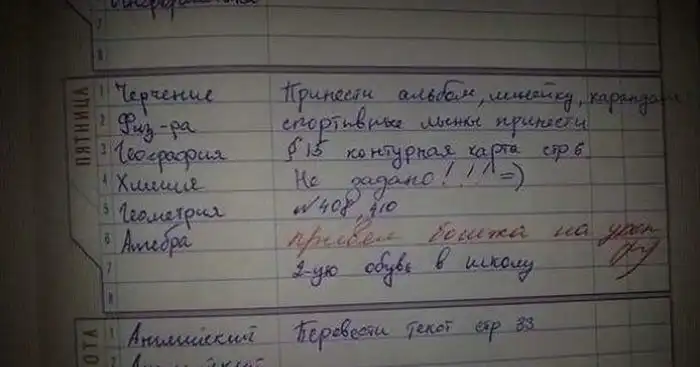 Информатика
7
8
ПЯТНИЦА
1 Черчение Принести альбом, линейку, карандаш
2 Физ-ра спортивные лыжы принести
3 География §15 контурная карта стр 6
4 Химия Не задано!!!! =)
5 Геометрия №408, 410
6 Алгебра привел бомжа на урок
7 2-ую обувь в школу
8
ОТА
1 Английский Перевести текст стр 33
2